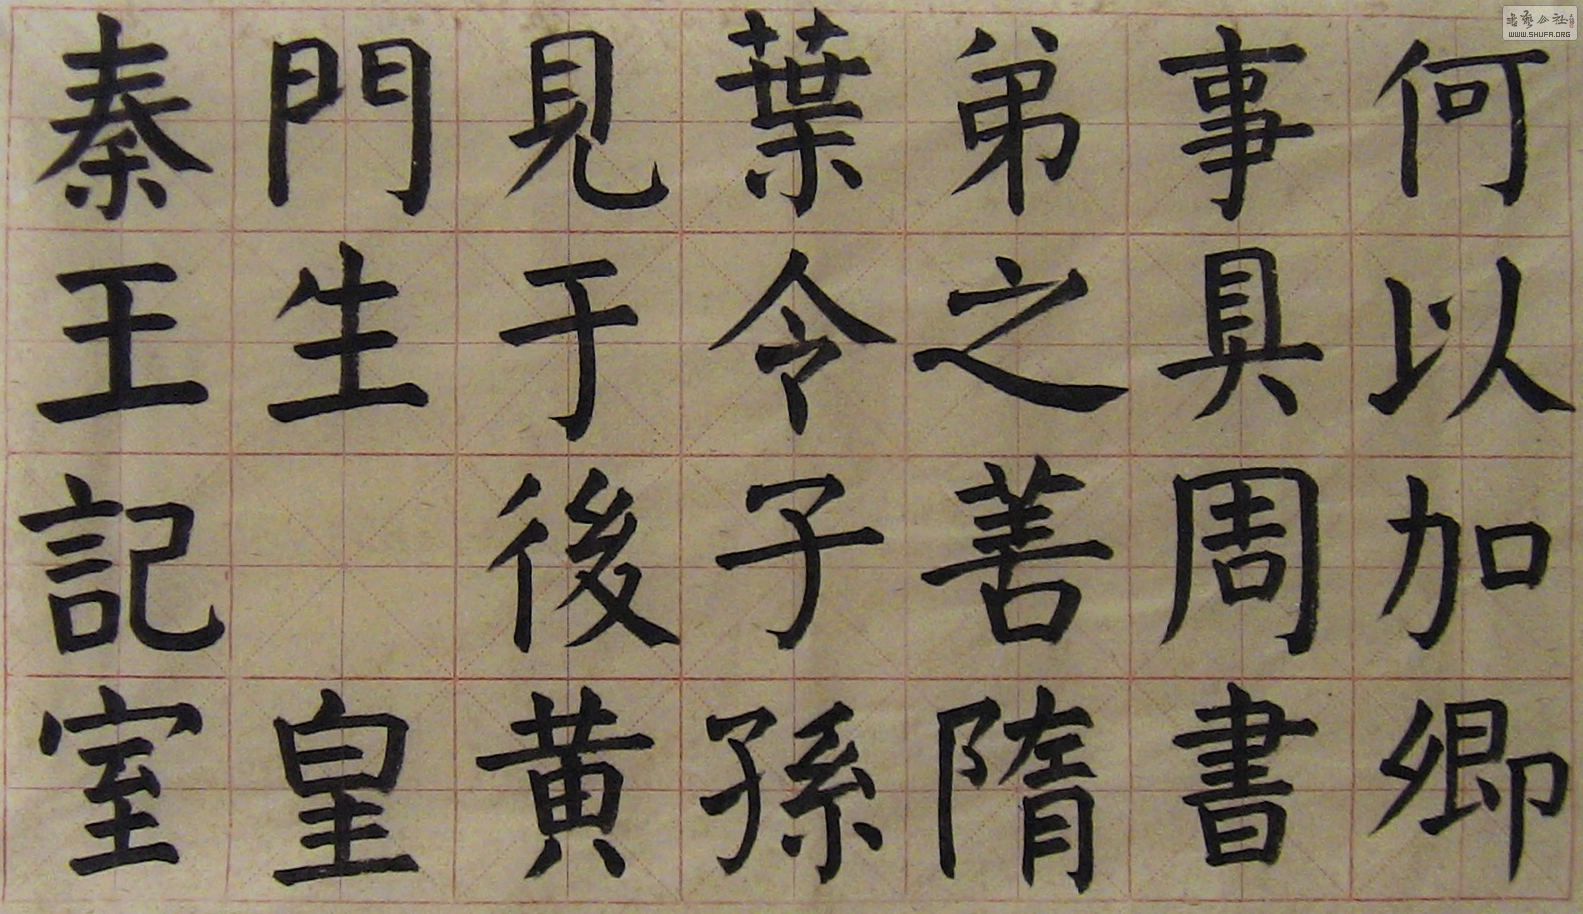 何以加卿
事具周書
弟之善隋
葉令子孫
見于後黄
門生 皇
秦王記室
書藝公社
WWW.SHUFA.ORG